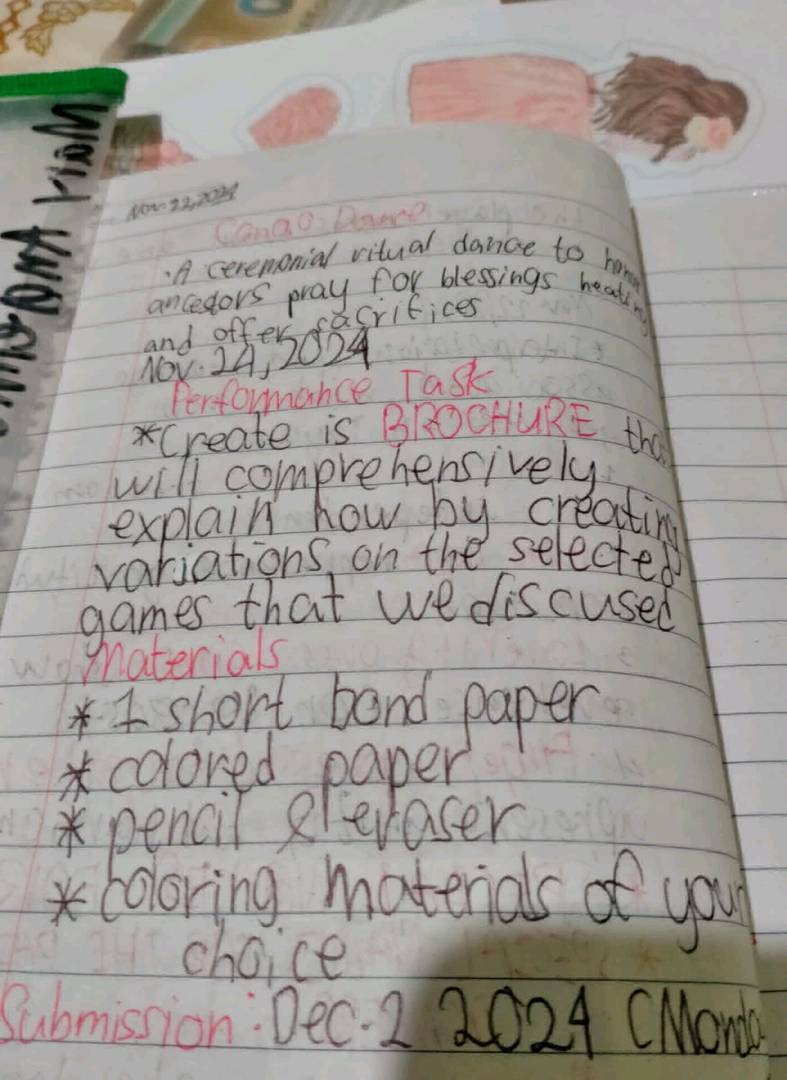 Nov. 22, 2024
Canao Dance
· A ceremonial ritual dance to
ancestors pray for blessings
and offer sacrifices
Nov. 24, 2024
Performance Task
*Create is BROCHURE tha
will comprehensively
explain how by creating
variations on the selected
games that we discused
Materials
* 1 short bond paper
* colored paper
* pencil & eraser
* coloring materials of your
choice
Submission: Dec. 2 2024 (Monda